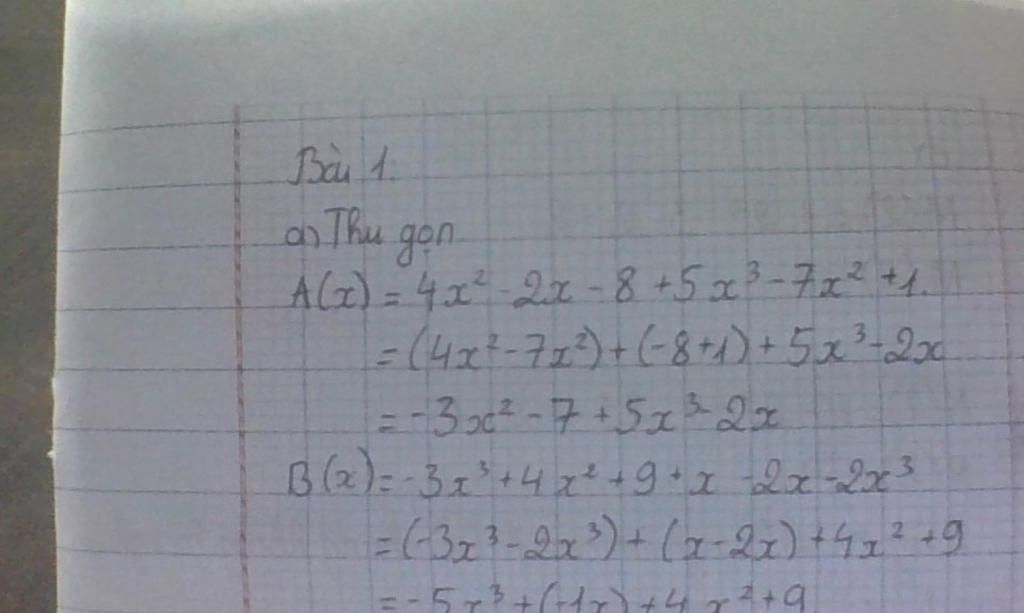 Bài 1.
a) Thu gọn
A(x) = 4x² - 2x - 8 + 5x³ - 7x² + 1.
= (4x² - 7x²) + (-8+1) + 5x³ - 2x
= -3x² - 7 + 5x³ - 2x
B(x) = -3x³ + 4x² + 9 + x - 2x - 2x³
= (-3x³ - 2x³) + (x - 2x) + 4x² + 9
= -5x³ + (-1x) + 4x² + 9